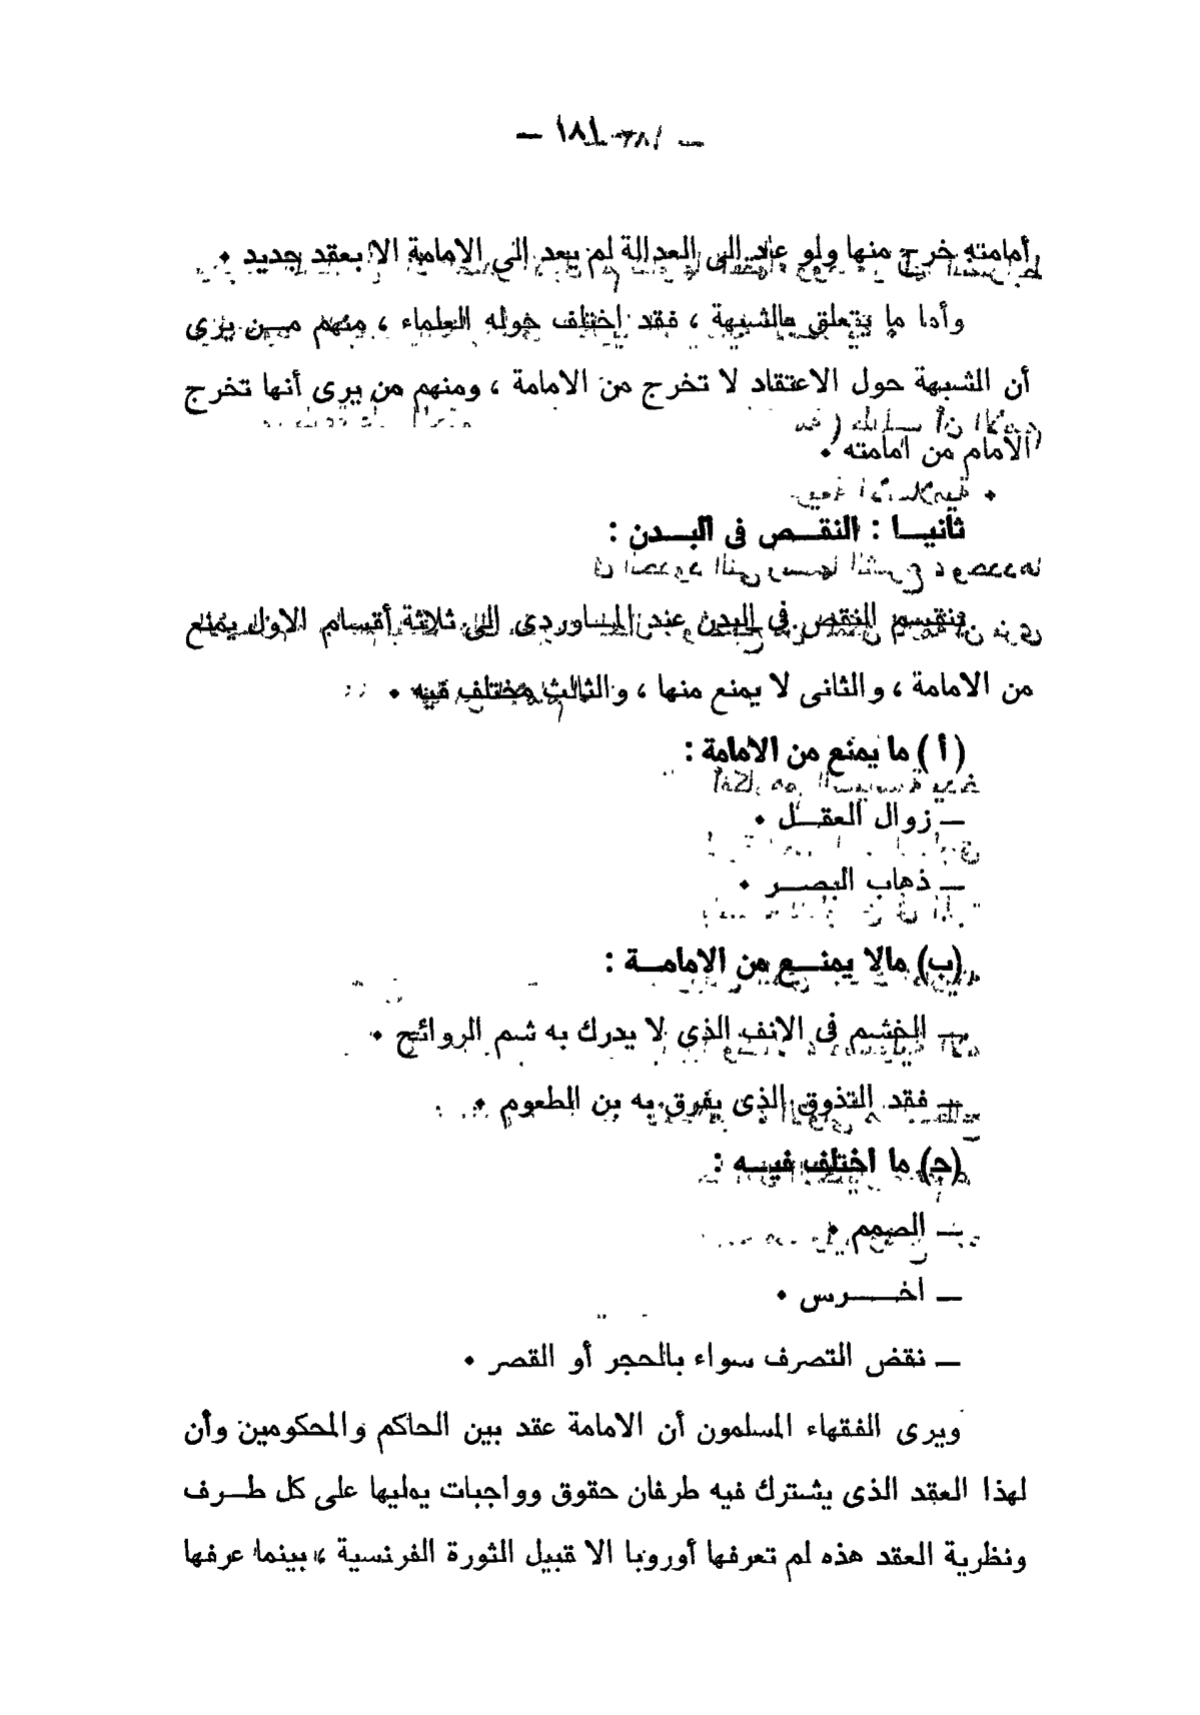 — ١٨١ —
أمامته خرج منها ولو عاد الى العدالة لم يعد الى الامامة الا بعقد جديد ٠
وأما ما يتعلق بالشبهة ، فقد اختلف حوله العلماء ، منهم مــن يرى
أن الشبهة حول الاعتقاد لا تخرج من الامامة ، ومنهم من يرى أنها تخرج
الامام من امامته ٠
ثانيــا : النقــص فى البــدن :
ينقسم النقص فى البدن عند المـاوردى الى ثلاثة أقسام الاول يمنع
من الامامة ، والثانى لا يمنع منها ، والثالث مختلف فيه ٠
( أ ) ما يمنع من الامامة :
— زوال العقــل ٠
— ذهاب البصــر ٠
(ب) مالا يمنــع من الامامــة :
— الخشم فى الانف الذى لا يدرك به شم الروائح ٠
— فقد التذوق الذى يفرق به بن الطعوم ٠
(ج) ما اختلف فيــه :
— الصمم ٠
— اخــــرس ٠
— نقض التصرف سواء بالحجر أو القصر ٠
ويرى الفقهاء المسلمون أن الامامة عقد بين الحاكم والمحكومين وأن
لهذا العقد الذى يشترك فيه طرفان حقوق وواجبات يمليها على كل طــرف
ونظرية العقد هذه لم تعرفها أوروبا الا قبيل الثورة الفرنسية ، بينما عرفها